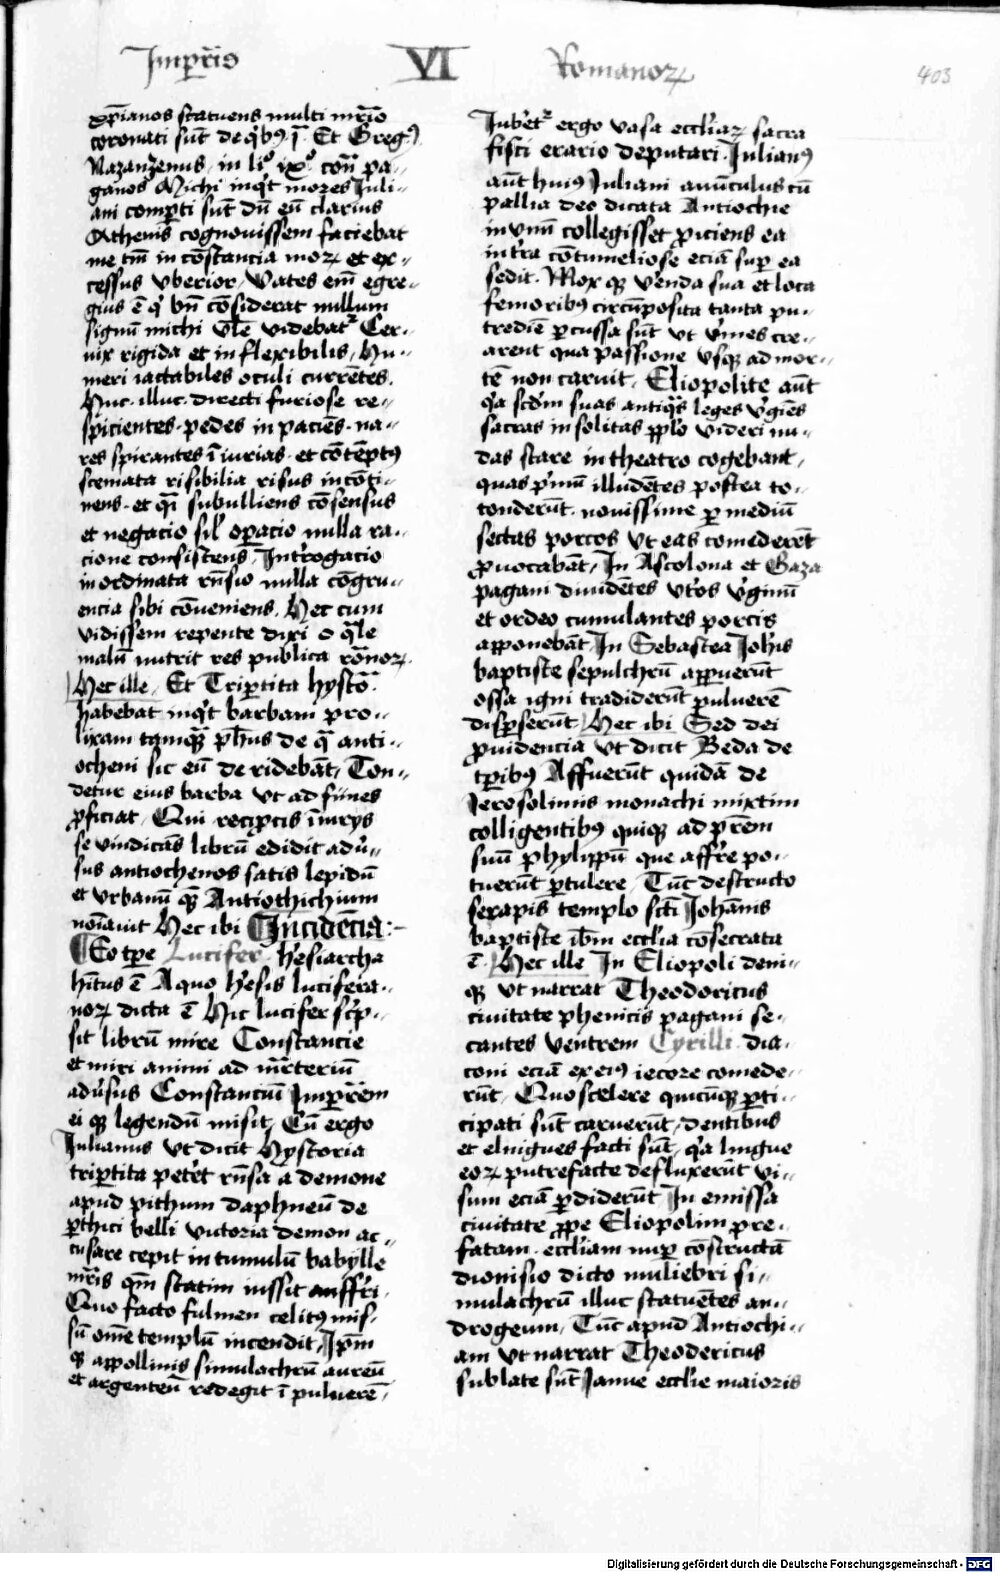 Imꝑr̄is VI Romanoꝝ 403
xp̄ianos statuens multi mr̄io
coronati sūt de qⁱbꝰ ī Et Gregꝰ
Nazanzenus in liᵒ ixᵒ con̄ pa-
ganos Michi inqⁱt mores Juli-
ani comꝑti sūt dū eū clarius
Athenis cognouissem faciebat
me tn̄ in cōstancia moꝝ et ex-
cessus vberior, Vates em̄ egre-
gius ē qⁱ bn̄ cōsiderat nullum
signū michi vtͥle videbat᷑ Cer-
uix rigida et inflexibilis, Hu-
meri iactabiles oculi currētes.
Huc illuc directi furiose re-
spicientes pedes in paciēs na-
res spirantes ī iurias et cōtēptꝰ
scemata risibilia risus incōti-
nens et qⁱ subulliens cōsensus
et negacio sil̄ oꝑacio nulla ra-
cione consistens, Int̄rogacio
inordinata rn̄sio nulla cōgru-
encia sibi cōueniens, Hec cum
vidissem repente dixi o qᵃle
malū nutrit res publica rōnoꝝ
Hec ille, Et Triꝑtita hystoᵃ
habebat inqⁱt barbam pro-
lixam tamqᵃ ph̄us de qᵃ anti-
ocheni sic eū deridebāt, Ton-
detur eius barba vt ad funes
ꝓficiat, Qui reciꝓcis iniurys
se vindicās librū edidit adū-
sus antiochenos satis lepidū
et vrbanū qᵉ Antiochicum
noīauit Hec ibi Incidēcia:-
Eo tꝑe Lucifer hesiarcha
hītus ē A quo h̓esis lucifera-
noꝝ dicta ē Hic lucifer scⁱp-
sit librū mire Constancie
et miri animi ad mr̄teriū
adūsus Constantiū Imꝑrēm
ei qꝫ legendū misit, Cū ergo
Julianus vt dicit Hystoria
triꝑtita petēt rn̄sa a demone
apud pithum daphneū de
ꝑthici belli victoria demon ac-
cusare cepit in tumulū babylle
mr̄is qm̄ statim iussit auffr̄i
Quo facto fulmen celitꝰ mis-
sū om̄e templū incendit, Ip̄m
qꝫ appollinis simulachrū aureū
et argenteū redegit ī puluerē,
Jubēt᷑ ergo vasa eccl̄iaꝝ sacra
fisci erario deputari Julianꝰ
aūt huiꝰ Juliani auūculus cū
pallia deo dicata Antiochie
in vnū collegisset ꝓiciens ea
in t̄ra cōtumeliose eciā suꝑ ea
sedit. Mox qꝫ v̓enda sua et loca
femoribꝰ circūposita tanta pu-
tredīe ꝑcussa sūt vt v̓mes cre-
arent qua passione vsqꝫ ad mor-
tē non caruit, Eliopolite aūt
qᵃ scdm̄ suas antiqᵃs leges v̓gīes
sacras insolitas pp̄lo videri nu-
das stare in theatro cogebant,
quas pⁱmū illudētes postea to-
tonderūt nouissime ꝑ mediū
sectas porcos vt eas comederēt
ꝓuocabāt, In Ascolona et Gaza
pagani diuidētes vt̓os v̓ginū
et ordeo cumulantes porcis
apponebāt, In Sebastea Joh̄is
baptiste sepulchrū appuerūt
ossa igni tradiderūt puluerē
disꝑserūt Hec ibi Sed dei
ꝓuidencia vt dicit Beda de
tꝑibꝰ Affuerūt quidā de
Jerosolimis monachi mixtim
colligentibꝰ quiqꝫ ad pr̄em
suū phylippū que affr̄e po-
tuerūt ꝑtulere, Tūc destructo
serapis templo sc̄ti Johānis
baptiste ibm̄ eccl̄ia cōsecrata
ē Hec ille In Eliopoli deni-
qꝫ vt narrat Theodoricus
ciuitate phenicis pagani se-
cantes ventrem Cyrilli dia-
coni eciā ex eiꝰ iecore comede-
rūt, Quo scelere quicūqꝫ ꝑti-
cipati sūt caruerūt dentibus
et elingues facti sūt, qᵃ lingue
eoꝝ putrefacte defluxerūt vi-
sum eciā ꝑdiderūt In emissa
ciuitate ꝓpe Eliopolim pre-
fatam eccl̄iam nuꝑ cōstructā
dionisio dicto muliebri si-
mulachrū illuc statuētes an-
drogeum, Tūc apud Antiochi-
am vt narrat Theodericus
sublate sūt Ianue eccl̄ie maioris
Digitalisierung gefördert durch die Deutsche Forschungsgemeinschaft - DFG